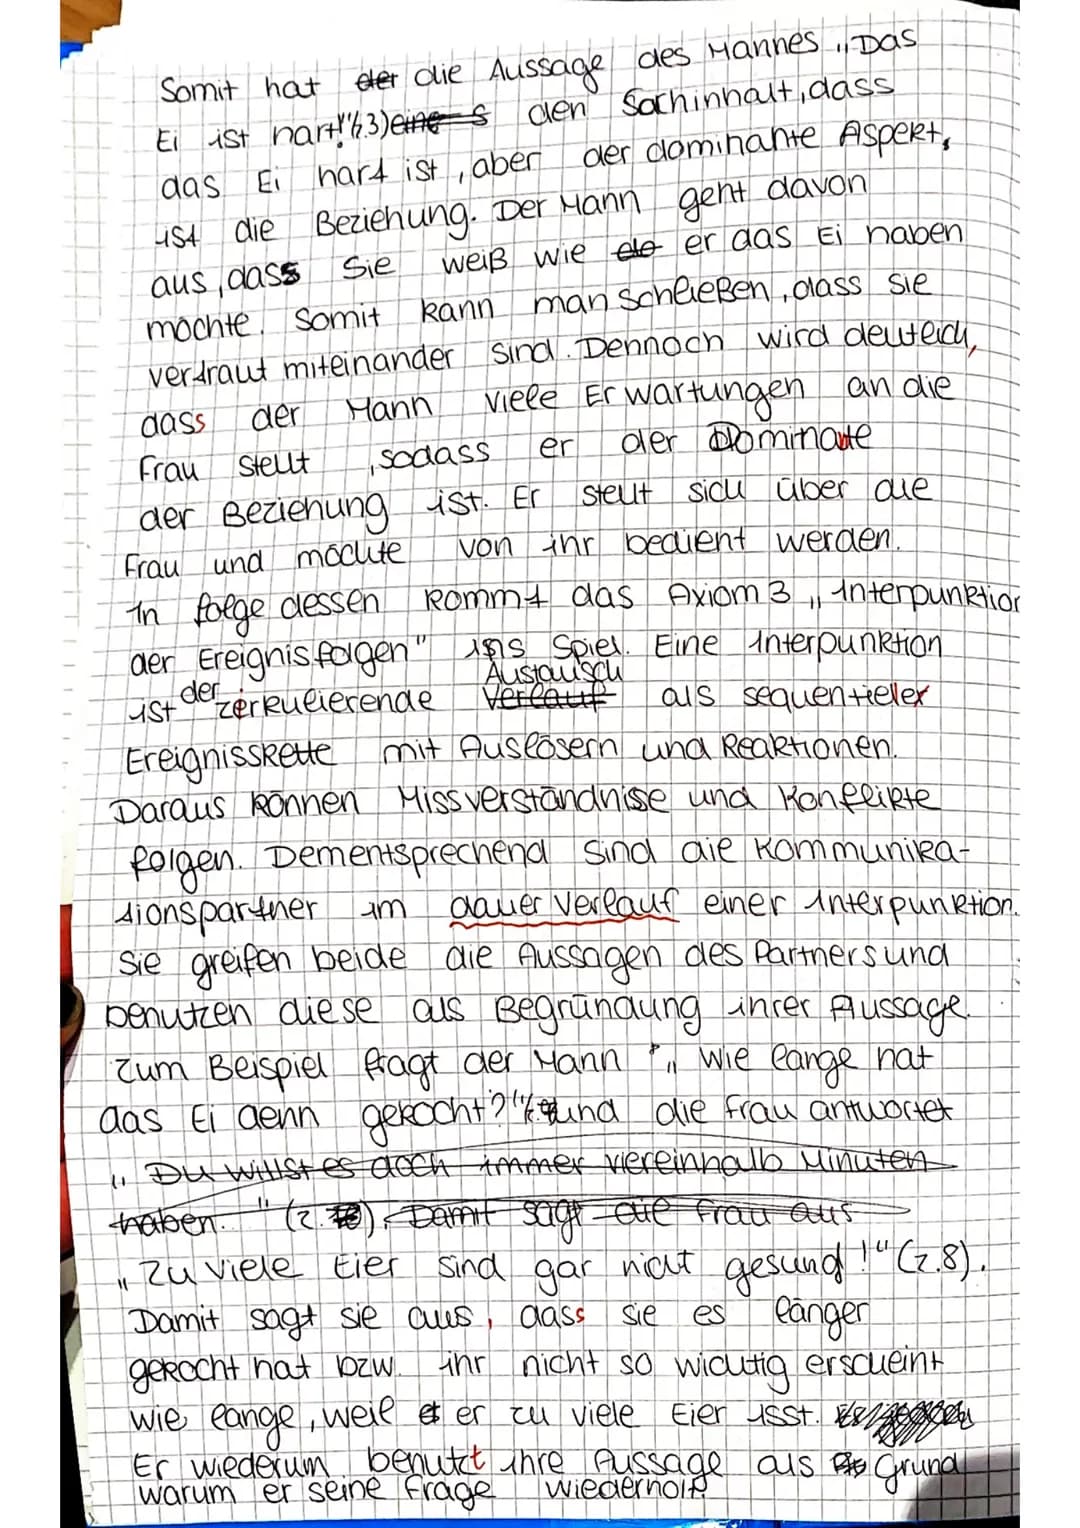 Somit hat der die Aussage des Mannes „Das
Ei ist hart!"(z.3) eine s den Sachinhalt, dass
das Ei hart ist, aber der dominante Aspekt,
ist die Beziehung. Der Mann geht davon
aus, dass sie weiß wie de er das Ei haben
möchte. Somit kann man schließen, dass sie
vertraut miteinander sind. Dennoch wird deutlich,
dass der Mann viele Erwartungen an die
Frau stellt, sodass er der Dominante
der Beziehung ist. Er stellt sich über die
Frau und möchte von ihr bedient werden.
In folge dessen kommt das Axiom 3 „Interpunktion
der Ereignisfolgen" ins Spiel. Eine Interpunktion
ist der zerkulierende Verlauf Austauisch als sequentieller
Ereignisskette mit Auslösern und Reaktionen.
Daraus können Missverständnisse und Konflikte
folgen. Dementsprechend sind die Kommunika-
tionspartner im dauer Verlauf einer Interpunktion.
Sie greifen beide die Aussagen des Partners und
benutzen diese als Begründung ihrer Aussage.
Zum Beispiel fragt der Mann „Wie lange hat
das Ei denn gekocht?" und die Frau antwortet
„Du willst es doch immer viereinhalb Minuten
haben." (z. ). Damit sagt die Frau aus
„Zu viele Eier sind gar nicht gesund!" (z.8).
Damit sagt sie aus, dass sie es länger
gekocht hat bzw. ihr nicht so wichtig erscheint
wie lange, weil er zu viele Eier isst.
Er wiederum benutzt ihre Aussage als Grund
warum er seine Frage wiederholt